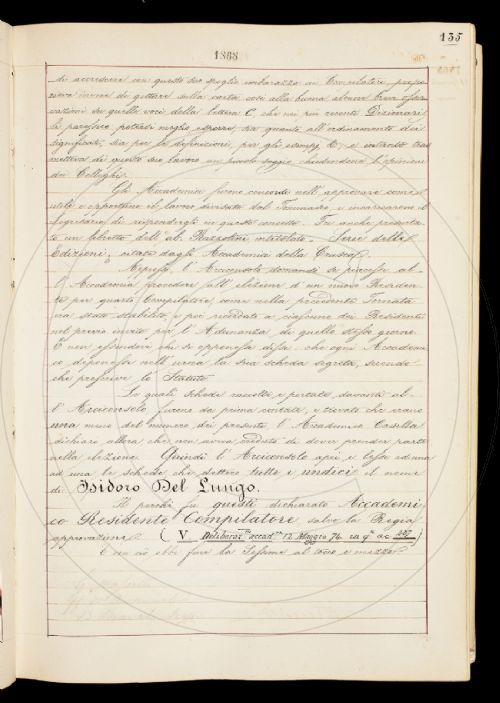 135
1868
di accrescere con questo suo scoglio imbarazzo ai Compilatori, propo
neva invece di gettare sulla carta così alla buona alcune brevi osser
vazioni su quelle voci della lettera C, che nei più recenti Dizionari
le paressero potersi meglio esporre, sia quanto all'ordinamento dei
significati, sia per le definizioni, per gli esempj &c. e intanto tras
metteva di questo suo lavoro un piccolo saggio, chiedendone l'opinione
dei Colleghi.
Gli Accademici furono concordi nell'approvare come
utile e opportuno il lavoro divisato dal Tommaseo e incaricarono il
Segretario di rispondergli in questo concetto. Fu anche presenta
to un libretto dell'ab. Razzolini intitolato - Serie delle
Edizioni citate dagli Accademici della Crusca.
Appresso, l'Arciconsolo domandò se piaceva al
l'Accademia procedere all'elezione d'un nuovo Residen
te per quarto Compilatore, come nella precedente Tornata
era stato stabilito, e poi ricordato a ciascuno dei Residenti
nel previo invito per l'Adunanza di quello stesso giorno.
E non essendovi chi si opponesse disse che ogni Accademi
co deponesse nell'urna la sua scheda segreta, secondo
che prescrive lo Statuto.
Le quali schede raccolte e portate davanti al
l'Arciconsolo furono da prima contate, e trovato che erano
una meno del numero dei presenti l'Accademico Casella
dichiarò allora che non aveva creduto di dover prender parte
nella elezione. Quindi l'Arciconsolo aprì e lesse ad una
ad una le schede che dettero tutte e undici il nome
di Isidoro Del Lungo.
Il perchè fu questi dichiarato Accademi
co Residente Compilatore salvo la Regia
approvazione. (V. Deliberaz.ne accad.ca 12 Maggio 74. in q.o a c. 227)
E con ciò ebbe fine la Sessione al tocco e mezzo.